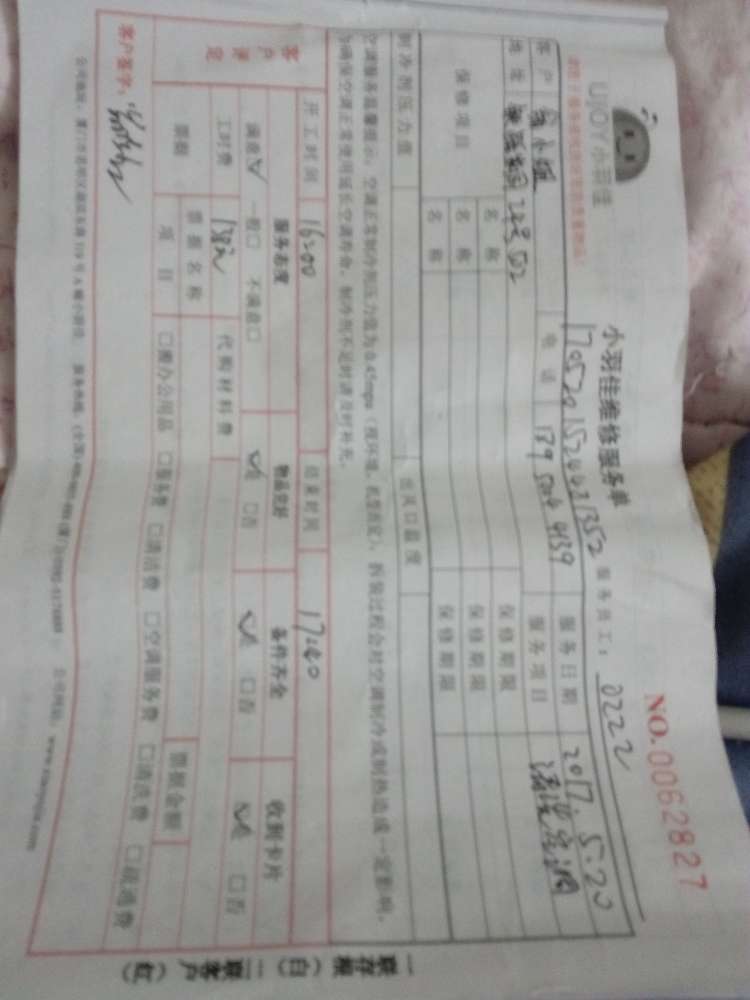 UJOY小羽佳
小羽佳维修服务单
NO.0062827
1705201524421352 服务员工: 0222
客户 小姐 电话 139 5014 4139 服务日期 2017.5.20
地址 28号502 服务项目 清洗空调
保修项目 名称 保修期限
名称 保修期限
名称 保修期限
制冷剂压力值 出风口温度
空调服务温馨提示: 空调正常制冷剂压力值为0.45mpa (视环境、机型而定), 拆装过程会对空调制冷或制热造成一定影响,
为确保空调正常使用延长空调寿命, 制冷剂不足时请及时补充。
开工时间 16:00 结束时间 17:40
客户评定 服务态度 物品完好 备件齐全 收到卡片
满意☑ 一般□ 不满意□ ☑是 □否 ☑是 □否 ☑是 □否
工时费 138元 代购材料费
票据 票据名称 票据金额
项目 □办公用品 □服务费 □清洁费 □空调服务费 □清洗费 □疏通费
客户签字:
一联存根(白) 二联客户(红)